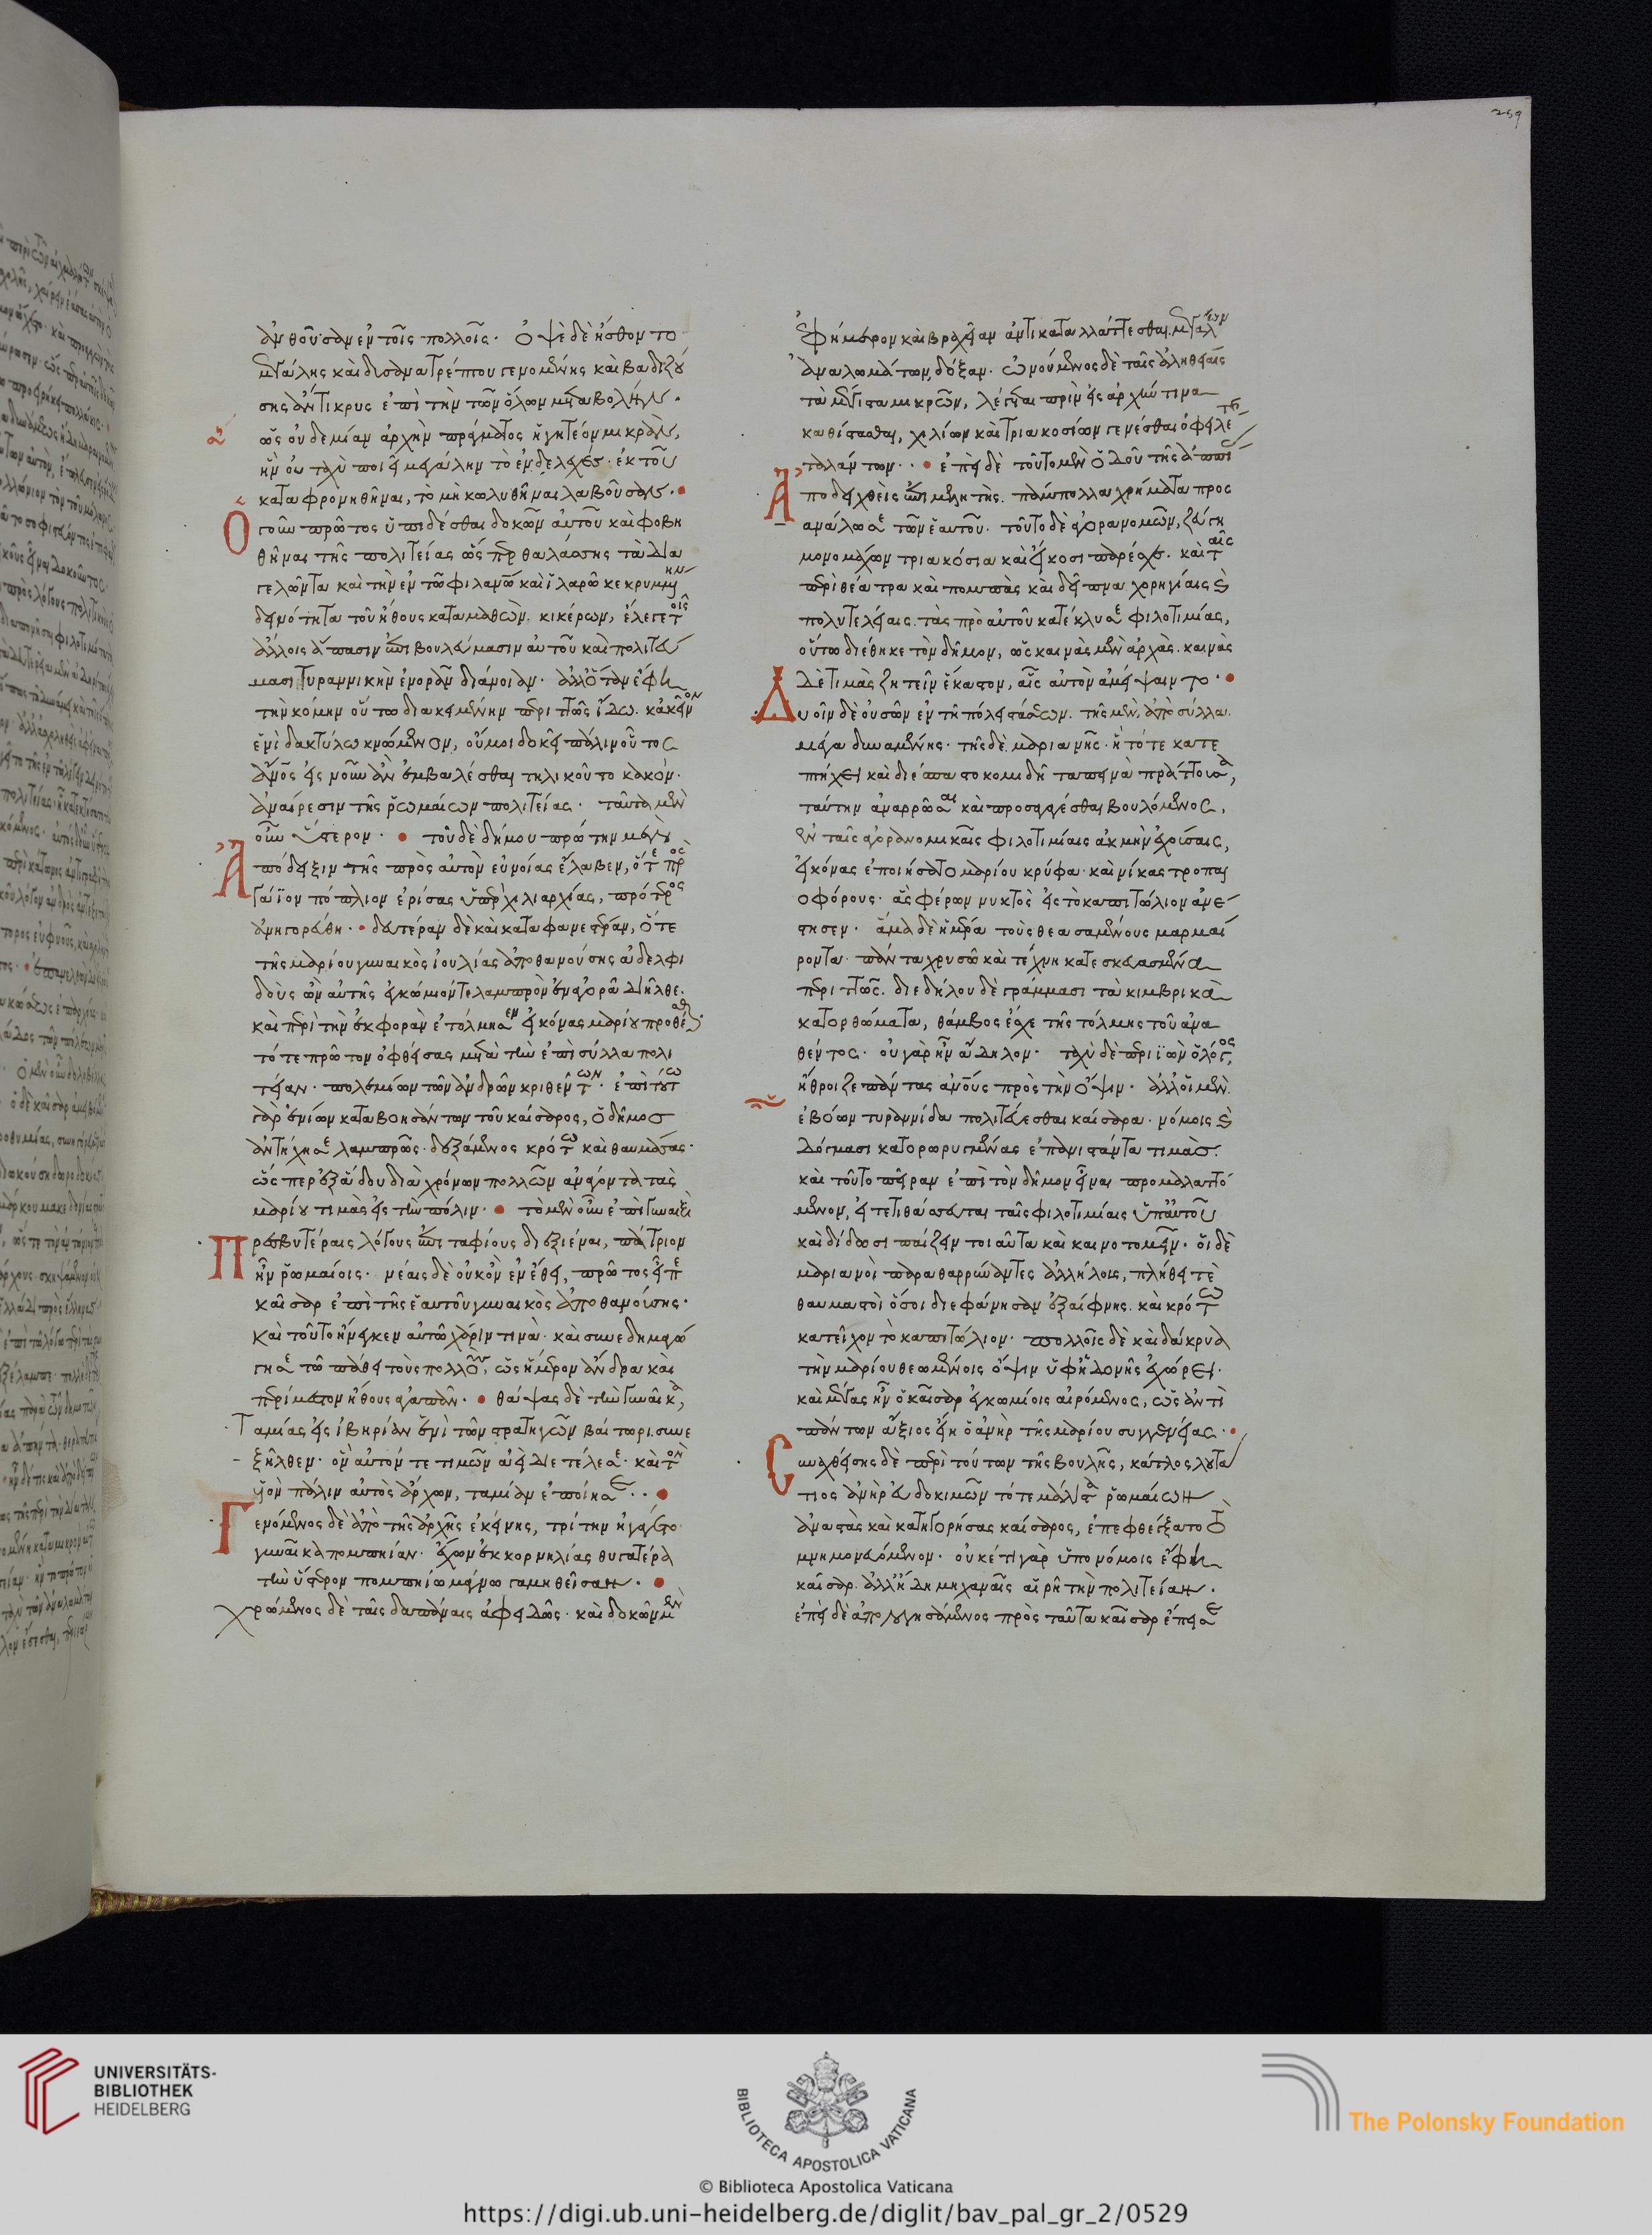 259
ἀνθοῦσαν ἐν τοῖς πολλοῖς. ὀψὲ δὲ ἤσθοντο
μεγάλης καὶ δυσανατρέπτου γενομένης καὶ βαδιζού
σης ἄντικρυς ἐπὶ τὴν τῶν ὅλων μεταβολήν.
ὡς οὐδεμίαν ἀρχὴν πράγματος ἡγητέον μικράν,
ἣν οὐ ταχὺ ποιεῖ μεγάλην τὸ ἐνδελεχές. ἐκ τοῦ
καταφρονηθῆναι, τὸ μὴ κωλυθῆναι λαβοῦσαν.
Ὁ γοῦν πρῶτος ὑπιδέσθαι δοκῶν αὐτοῦ καὶ φοβη
θῆναι τῆς πολιτείας ὥσπερ θαλάσσης τὰ δια
γελῶντα καὶ τὴν ἐν τῷ φιλανῷ καὶ ἱλαρῷ κεκρυμμένην
δεινότητα τοῦ ἤθους καταμαθὼν κικέρων, ἔλεγε τοῖς
ἄλλοις ἅπασιν ἐπιβουλεύμασιν αὐτοῦ καὶ πολιτεύ
μασι τυραννικὴν ἐνορᾶν διάνοιαν. ἀλλ' ὅταν ἔφη
τὴν κόμην οὕτω διακειμένην περιττῶς ἴδω. κἀκεῖνον
ἑνὶ δακτύλῳ κνώμενον, οὔ μοι δοκεῖ πάλιν οὗτος
ἄνος εἰς νοῦν ἂν ἐμβαλέσθαι τηλικοῦτο κακόν.
ἀναίρεσιν τῆς ῥωμαίων πολιτείας. ταῦτα μὲν
οὖν ὕστερον. τοῦ δὲ δήμου πρώτην μὲν
Ἀπόδειξιν τῆς πρὸς αὐτὸν εὐνοίας ἔλαβεν, ὅτε πρὸς
Γάϊον πόπλιον ἐρίσας ὑπὲρ χιλιαρχίας, πρότερος
ἀνηγορεύθη. δευτέραν δὲ καὶ καταφανεστέραν, ὅτε
τῆς μαρίου γυναικὸς ἰουλίας ἀποθανούσης ἀδελφι
δοῦς ὢν αὐτῆς ἐγκώμιόν τε λαμπρὸν ἐν ἀγορᾷ διῆλθε.
καὶ περὶ τὴν ἐκφορὰν ἐτόλμησεν εἰκόνας μαρίου προθέσθαι.
τότε πρῶτον ὀφθείσας μετὰ τὴν ἐπὶ σύλλα πολι
τείαν. πολεμίων τῶν ἀνδρῶν κριθέντων. ἐπὶ τούτω
γὰρ ἐνίων καταβοησάντων τοῦ καίσαρος, ὁ δῆμος
ἀντήχησε λαμπρῶς. δεξάμενος κρότω καὶ θαυμάσας.
ὥσπερ ἐξ ᾅδου διὰ χρόνων πολλῶν ἀνάγοντα τὰς
μαρίου τιμὰς εἰς τὴν πόλιν. τὸ μὲν οὖν ἐπὶ γυναιξὶ
Πρεσβυτέραις λόγους ἐπιταφίους διεξιέναι, πάτριον
ἦν ῥωμαίοις. νέαις δὲ οὐκ ὂν ἐν ἔθει, πρῶτος εἶπε
καῖσαρ ἐπὶ τῆς ἑαυτοῦ γυναικὸς ἀποθανούσης.
καὶ τοῦτο ἤνεγκεν αὐτῷ χάριν τινὰ. καὶ συνεδημαγώ
γησε τῷ πάθει τοὺς πολλοὺς, ὡς ἥμερον ἄνδρα καὶ
περίμεστον ἤθους ἀγαπᾶν. θάψας δὲ τὴν γυναῖκα,
Ταμίας εἰς ἰβηρίαν ἑνὶ τῶν στρατηγῶν βαίτωρι συνε
ξῆλθεν. ὃν αὐτόν τε τιμῶν ἀεὶ διετέλεσε. καὶ τὸν
υἱὸν πάλιν αὐτὸς ἄρχων, ταμίαν ἐποίησε.
Γενόμενος δὲ ἀπὸ τῆς ἀρχῆς ἐκείνης, τρίτην ἠγάγετο
γυναῖκα πομπηίαν. ἔχων ἐκ κορνηλίας θυγατέρα
τὴν ὕστερον πομπηίῳ μάγνῳ γαμηθεῖσαν.
Χρώμενος δὲ ταῖς δαπάναις ἀφειδῶς. καὶ δοκῶν μὲν
ἐφήμερον καὶ βραχεῖαν ἀντικαταλλάττεσθαι μεγάλων
ἀναλωμάτων, δόξαν. ὠνούμενος δὲ ταῖς ἀληθείαις
τὰ μέγιστα μικρῶν, λέγεται πρὶν εἰς ἀρχήν τινα
καθίστασθαι, χιλίων καὶ τριακοσίων γενέσθαι ὀφειλέτης
ταλάντων. ἐπεὶ δὲ τοῦτο μὲν ὁδοῦ τῆς ἀππί
Ἀποδειχθεὶς ἐπιμελητὴς. πάμπολλα χρήματα προς
ανάλωσε τῶν ἑαυτοῦ. τοῦτο δὲ ἀγορανομῶν, ζεύγη
μονομάχων τριακόσια καὶ εἴκοσι παρέσχε. καὶ ταῖς
περὶ θέατρα καὶ πομπὰς καὶ δεῖπνα χορηγίαις καὶ
πολυτελείαις. τὰς πρὸ αὐτοῦ κατέκλυσε φιλοτιμίας,
οὕτω διέθηκε τὸν δῆμον, ὡς καινὰς μὲν ἀρχὰς. καινὰς
δὲ τιμὰς ζητεῖν ἕκαστον, αἷς αὐτὸν ἀμείψαιντο.
Δυοῖν δὲ οὐσῶν ἐν τῇ πόλει στάσεων. τῆς μὲν, ἀπὸ σύλλα
μέγα δυναμένης. τῆς δὲ μαριανῆς. ἣ τότε κατε
πτήχει καὶ διέσπαστο κομιδῇ ταπεινὰ πράττουσα,
ταύτην ἀναρρῶσαι καὶ προσαγαγέσθαι βουλόμενος,
ἐν ταῖς ἀγορανομικαῖς φιλοτιμίαις ἀκμὴν ἐχούσαις,
εἰκόνας ἐποιήσατο μαρίου κρύφα. καὶ νίκας τροπαι
οφόρους. ἃς φέρων νυκτὸς εἰς τὸ καπιτώλιον ἀνέ
στησεν. ἅμα δὲ ἡμέρᾳ τοὺς θεασαμένους μαρμαί
ροντα πάντα χρυσῷ καὶ τέχνῃ κατεσκευασμένα
περιττῶς. διεδήλου δὲ γράμμασι τὰ κιμβρικὰ
κατορθώματα, θάμβος ἔσχε τῆς τόλμης τοῦ ἀνα
θέντος. οὐ γὰρ ἦν ἄδηλον. ταχὺ δὲ περιϊὼν ὁ λόγος,
ἤθροιζε πάντας ἀνους πρὸς τὴν ὄψιν. ἀλλ' οἱ μὲν
ἐβόων τυραννίδα πολιτεύεσθαι καίσαρα. νόμοις καὶ
δόγμασι κατορωρυγμένας ἐπανιστάντα τιμάς.
καὶ τοῦτο πεῖραν ἐπὶ τὸν δῆμον εἶναι προμαλαττό
μενον, εἰ τετιθάσευται ταῖς φιλοτιμίαις ὑπ' αὐτοῦ
καὶ δίδωσι παίζειν τοιαῦτα καὶ καινοτομεῖν. οἱ δὲ
μαριανοὶ παραθαρρύναντες ἀλλήλοις, πλήθει τὲ
θαυμαστοὶ ὅσοι διεφάνησαν ἐξαίφνης. καὶ κρότω
κατεῖχον τὸ καπιτώλιον. πολλοῖς δὲ καὶ δάκρυα
τὴν μαρίου θεωμένοις ὄψιν ὑφ' ἡδονῆς ἐχώρει.
καὶ μέγας ἦν ὁ καῖσαρ ἐγκωμίοις αἰρόμενος, ὡς ἀντὶ
πάντων ἄξιος εἴη ὁ ἀνὴρ τῆς μαρίου συγγενείας.
Συναχθείσης δὲ περὶ τούτων τῆς βουλῆς, κάτλος λυτά
τιος ἀνὴρ εὐδοκιμῶν τότε μάλιστα ῥωμαίων
ἀναστὰς καὶ κατηγορήσας καίσαρος, ἐπεφθέγξατο τὸ
μνημονευόμενον. οὐκέτι γὰρ ὑπονόμοις ἔφη
καῖσαρ. ἀλλ' ἤδη μηχαναῖς αἱρεῖ τὴν πολιτείαν.
ἐπεὶ δὲ ἀπολογησάμενος πρὸς ταῦτα καῖσαρ ἔπεισε
UNIVERSITÄTS-
BIBLIOTHEK
HEIDELBERG
BIBLIOTECA APOSTOLICA VATICANA
The Polonsky Foundation
© Biblioteca Apostolica Vaticana
https://digi.ub.uni-heidelberg.de/diglit/bav_pal_gr_2/0529